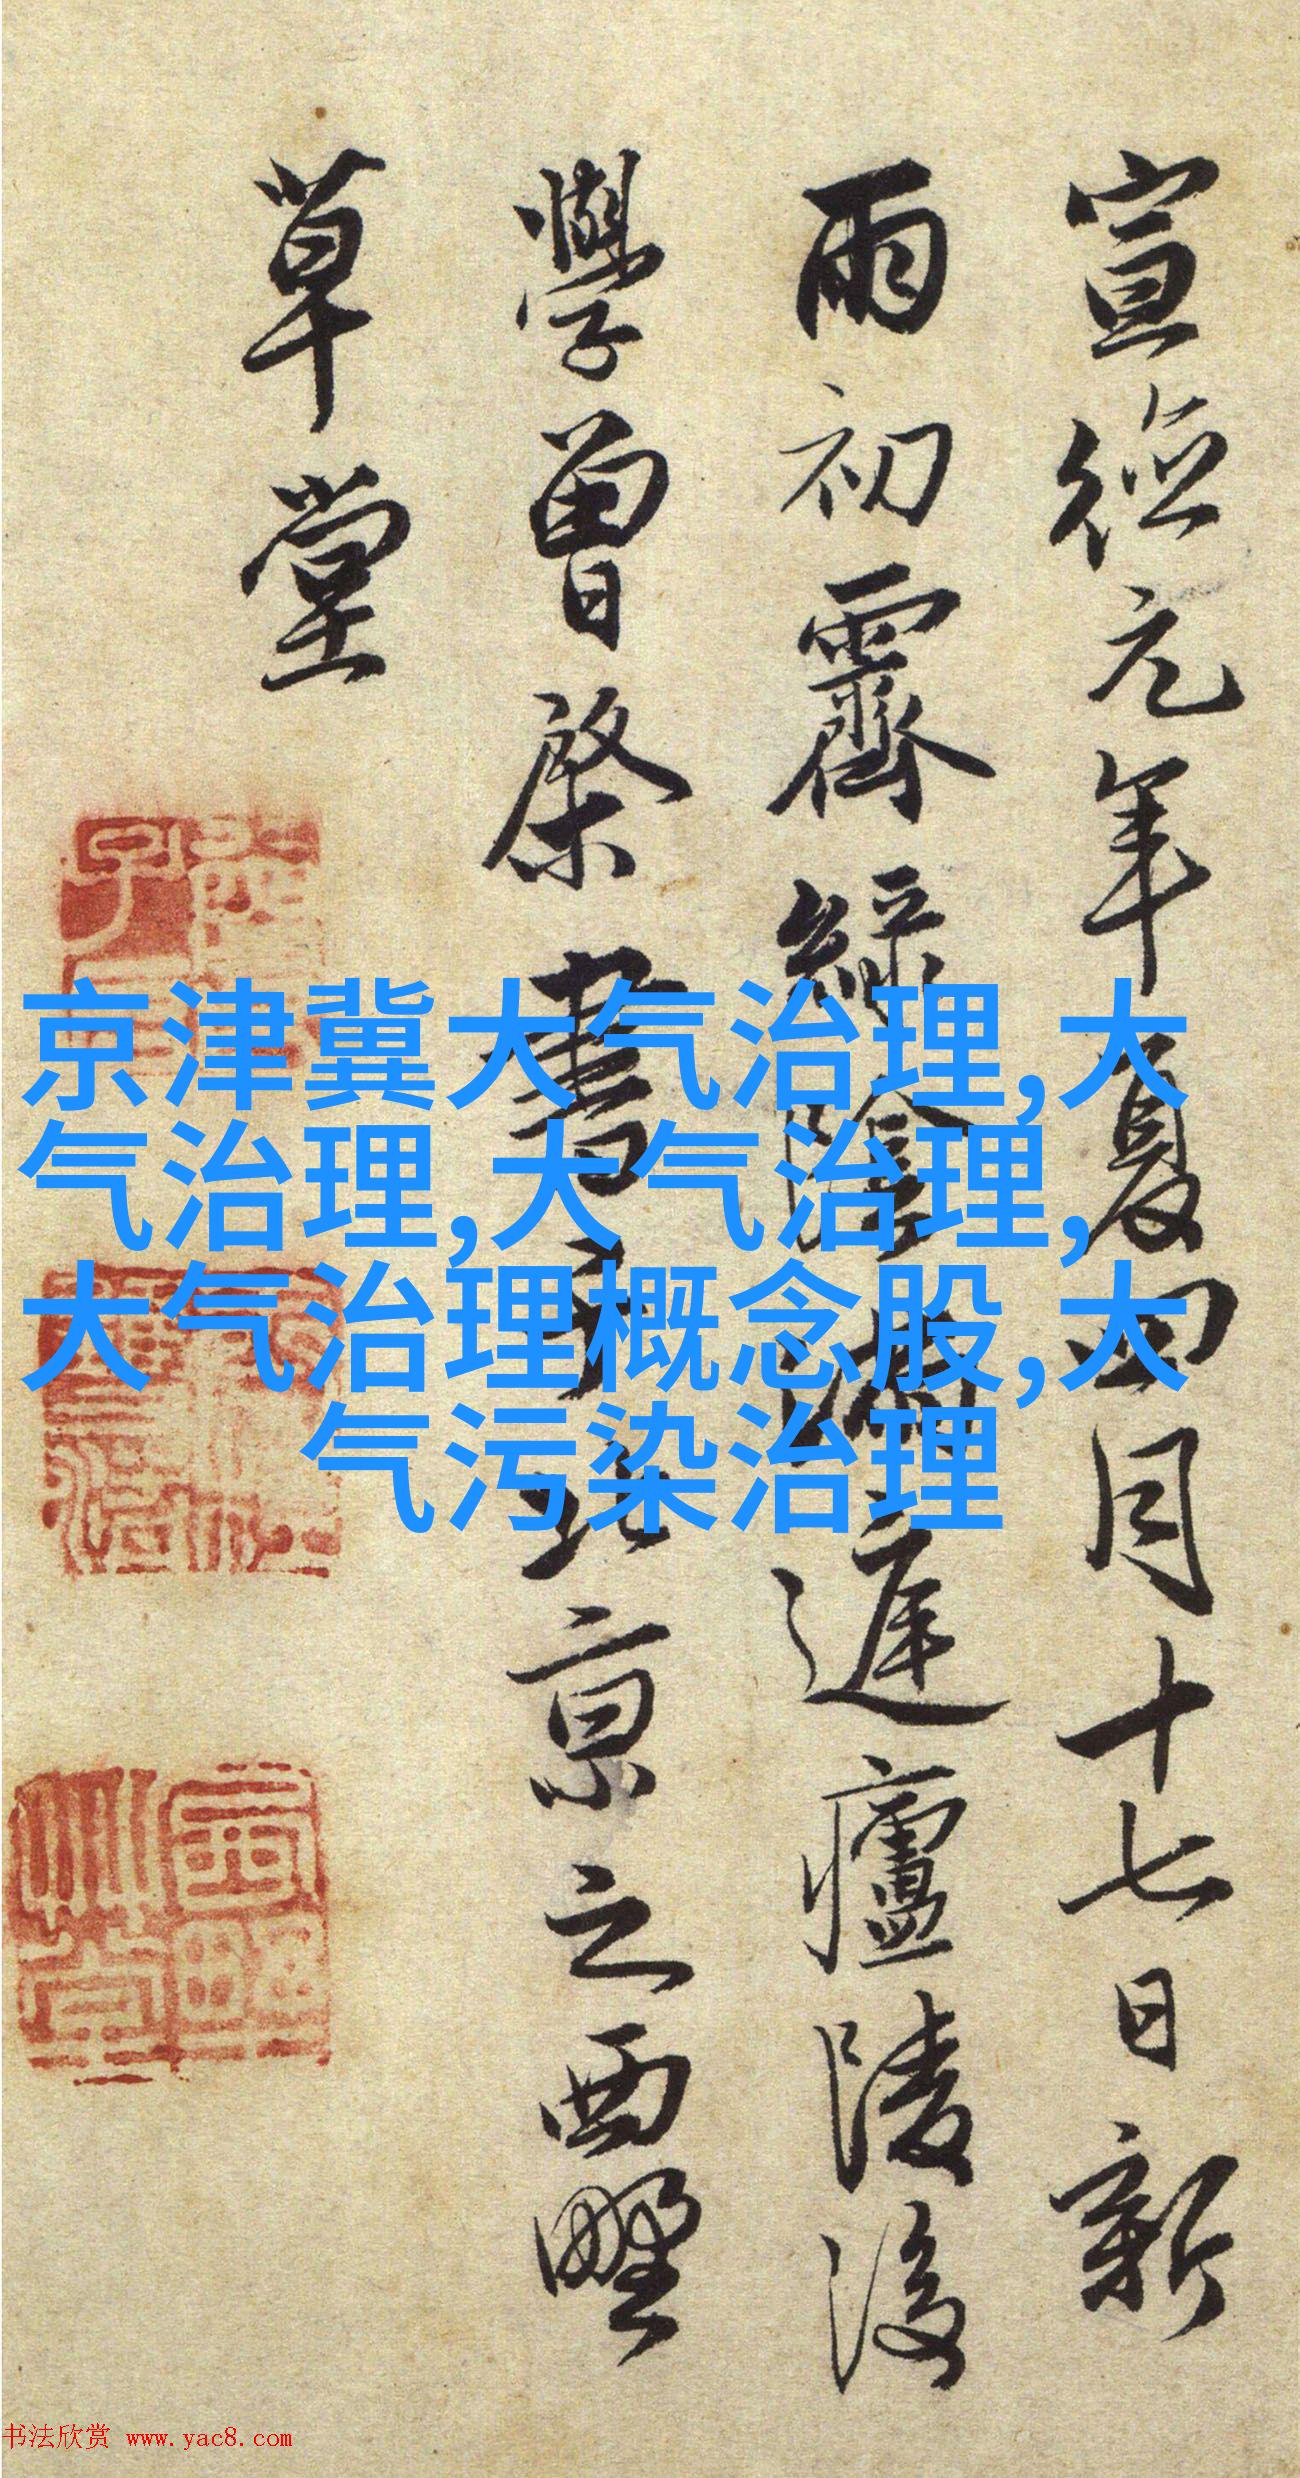 宣德元年夏四月十七日新
雨初霽綠陰廬陵後
學曾棨書于北京之西墅
草堂
京津冀大气治理,大
气治理,大气治理,
大气治理概念股,大
气污染治理
书法欣赏 www.yac8.com